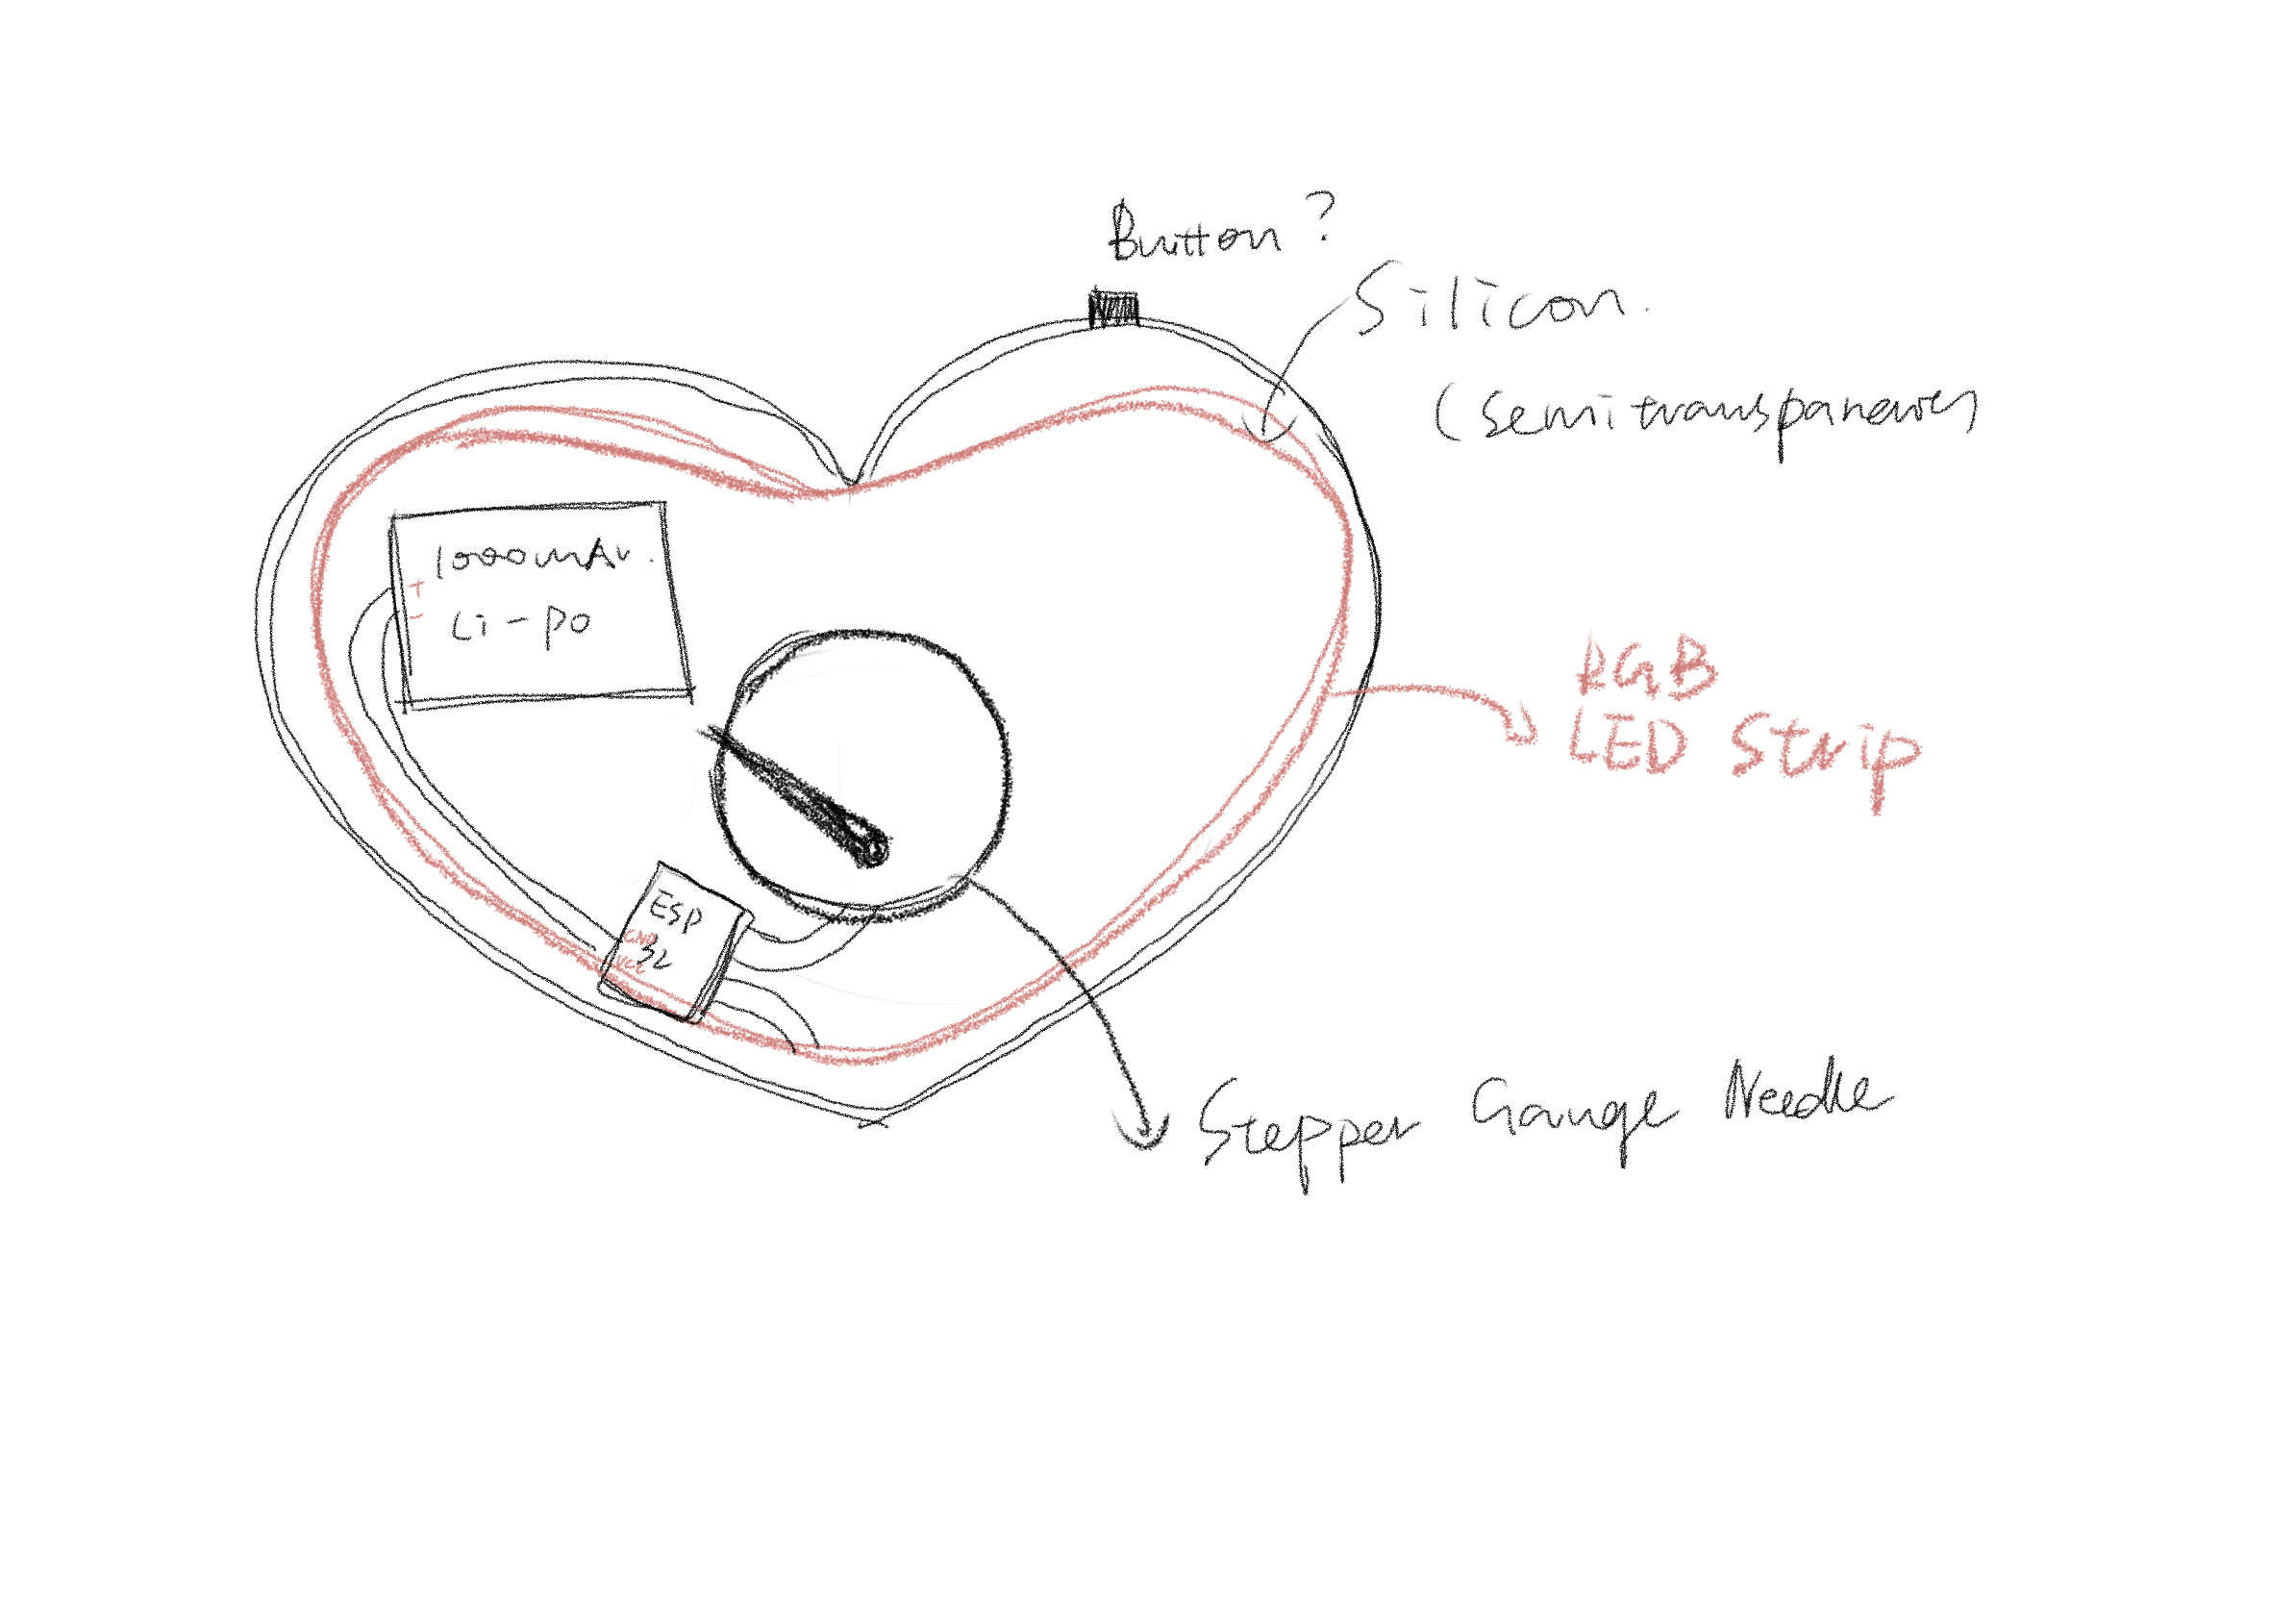 Button ?
Silicon.
(semitransparency
1000mAh.
+
-
Li-po
RGB
LED Strip
ESP
GND
32
VCC
Stepper Gauge Needle